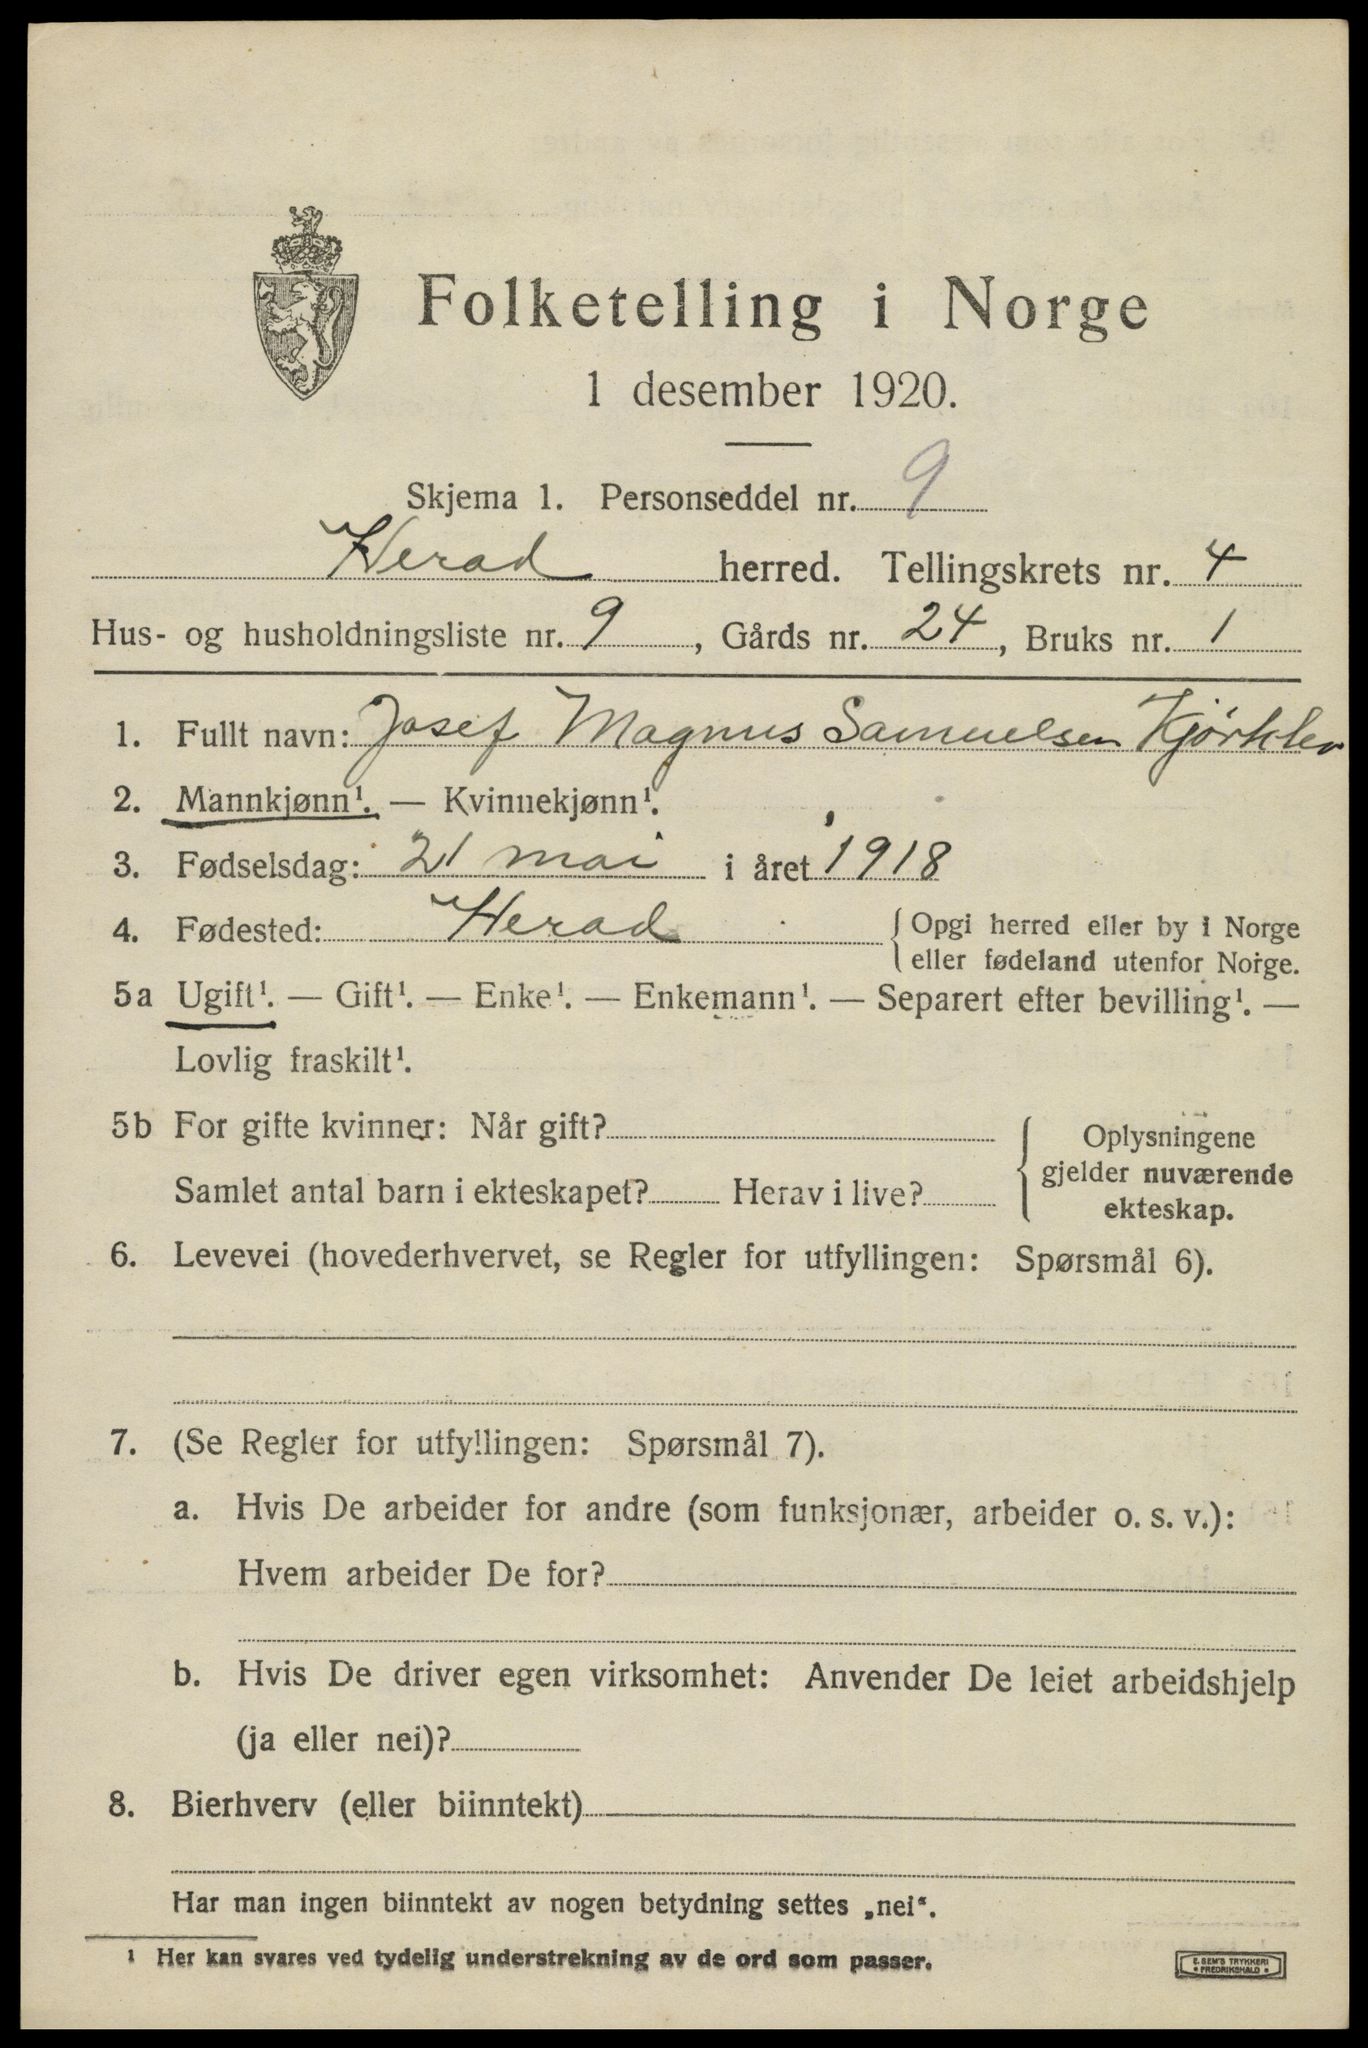 Folketelling i Norge
1 desember 1920.
Skjema 1. Personseddel nr. 9
Herad herred. Tellingskrets nr. 4
Hus- og husholdningsliste nr. 9, Gårds nr. 24, Bruks nr. 1
1. Fullt navn: Josef Magnus Samuelsen Kjørklev
2. Mannkjønn¹. — Kvinnekjønn¹.
3. Fødselsdag: 21 mai i året 1918
4. Fødested: Herad { Opgi herred eller by i Norge
eller fødeland utenfor Norge.
5a Ugift¹. — Gift¹. — Enke¹. — Enkemann¹. — Separert efter bevilling¹. —
Lovlig fraskilt¹.
5b For gifte kvinner: Når gift?
Samlet antal barn i ekteskapet? Herav i live?
{ Oplysningene
gjelder nuværende
ekteskap.
6. Levevei (hovederhvervet, se Regler for utfyllingen: Spørsmål 6).
7. (Se Regler for utfyllingen: Spørsmål 7).
a. Hvis De arbeider for andre (som funksjonær, arbeider o. s. v.):
Hvem arbeider De for?
b. Hvis De driver egen virksomhet: Anvender De leiet arbeidshjelp
(ja eller nei)?
8. Bierhverv (eller biinntekt)
Har man ingen biinntekt av nogen betydning settes „nei“.
¹ Her kan svares ved tydelig understrekning av de ord som passer.
E. SEM'S TRYKKERI
FREDRIKSHALD